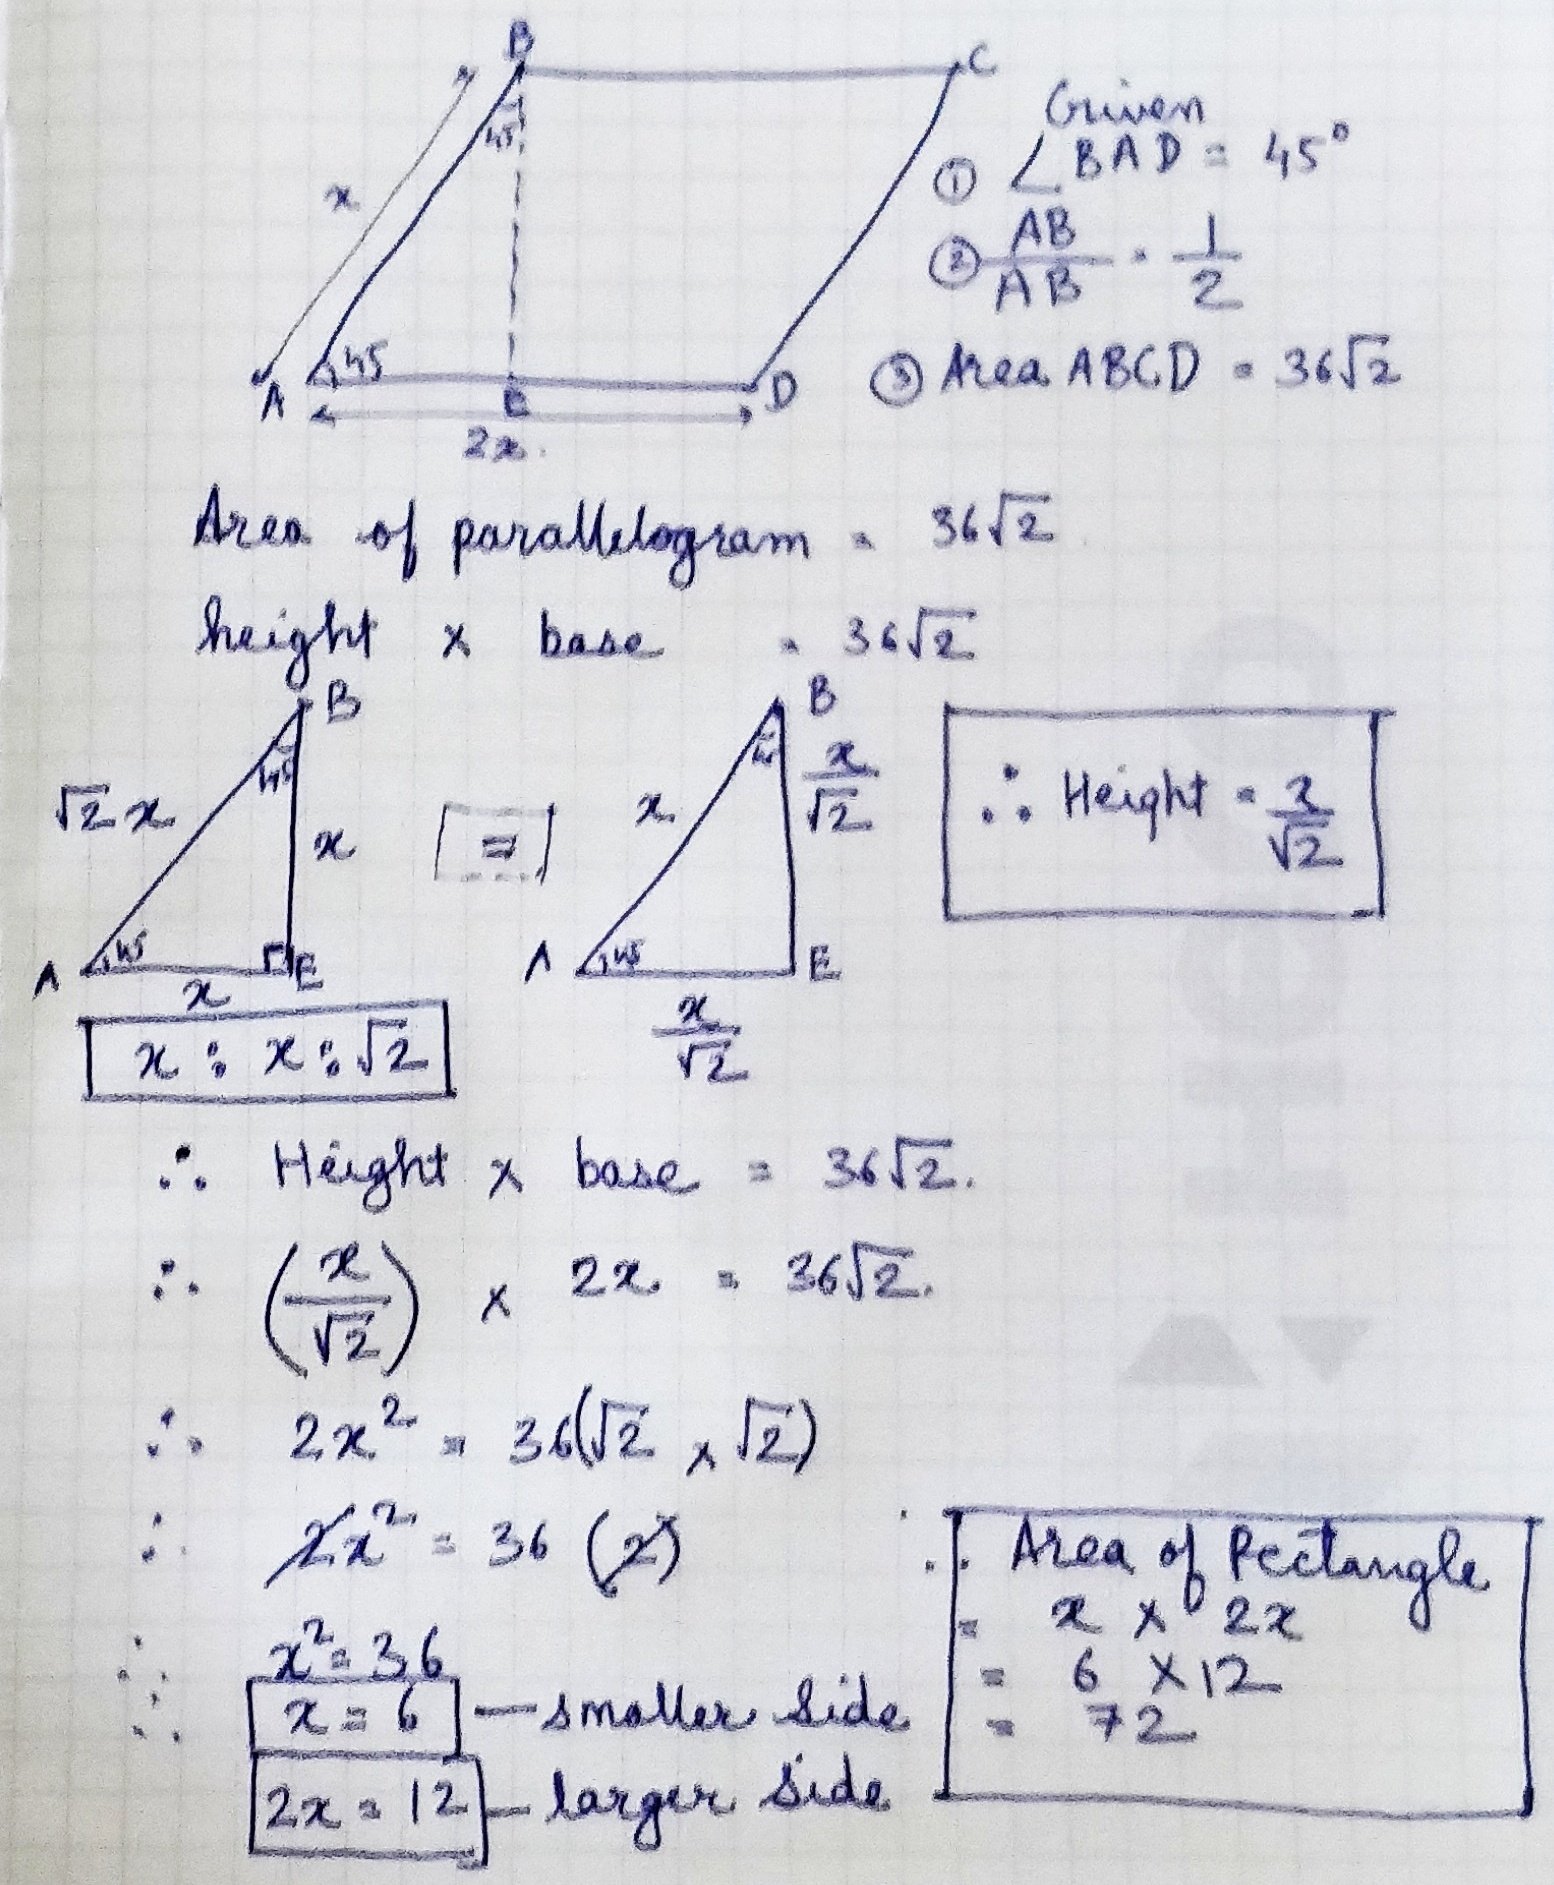 B
C
Given
x
45
① ∠BAD = 45°
② AB/AB = 1/2
A 45 E D
2x
③ Area ABCD = 36√2
Area of parallelogram = 36√2
height × base = 36√2
B
45
√2 x
x
A 45 E
x
=
B
x
x/√2
A 45 E
x/√2
∴ Height = x/√2
x : x : √2
∴ Height × base = 36√2.
∴ (x/√2) × 2x = 36√2.
∴ 2x² = 36(√2 × √2)
∴ 2x² = 36 (2)
∴ x² = 36
∴ x = 6 — smaller side
2x = 12 — larger side
∴ Area of Rectangle
= x × 2x
= 6 × 12
= 72